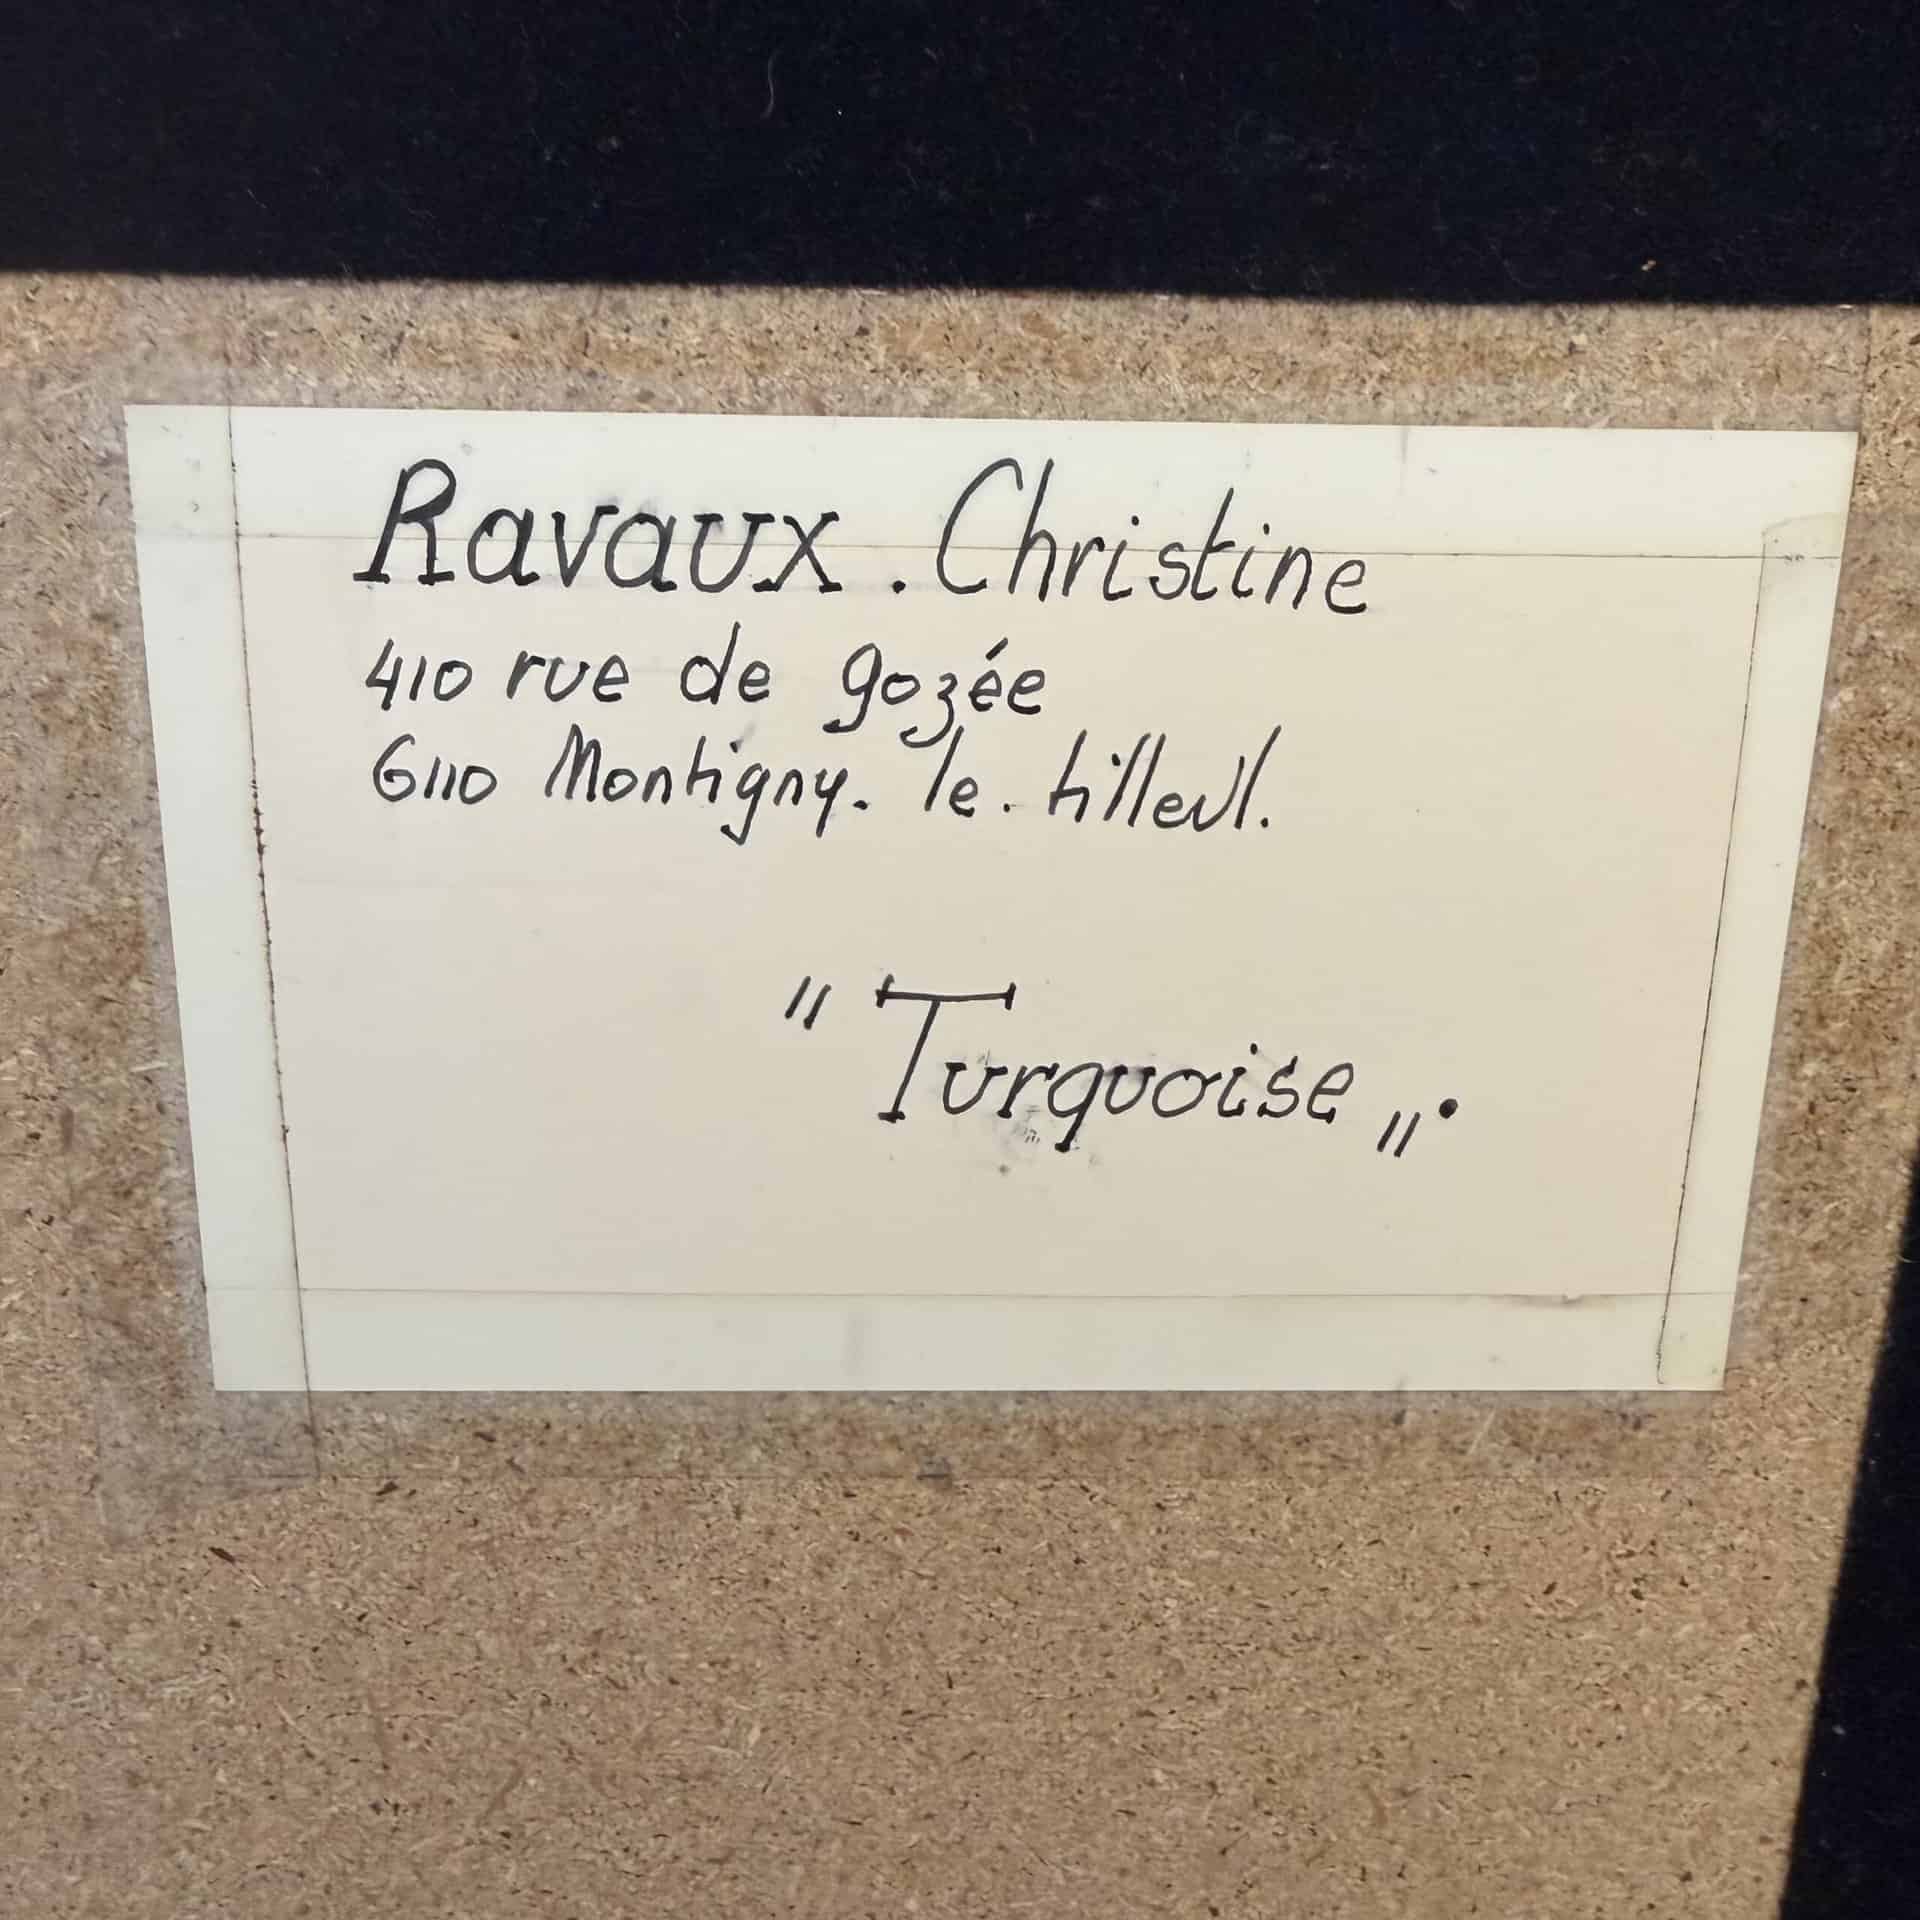 Ravaux. Christine
410 rue de gozée
6110 Montigny. le. tilleul.
" Turquoise ".